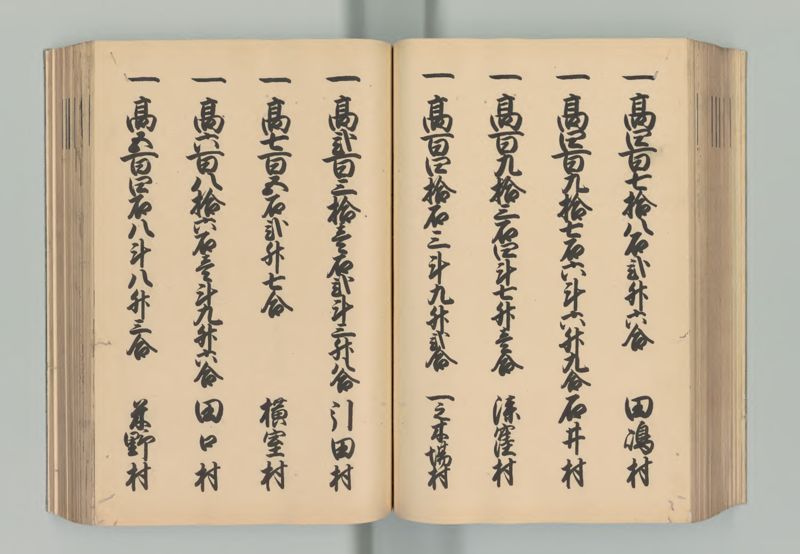 一 高四百七拾八石弐升六合 田嶋村
一 高四百九拾七石六斗六升九合 石井村
一 高百九拾三石四斗七升壱合 漆窪村
一 高百四拾石三斗九升弐合 一之木場村
一 高弐百三拾壱石弐斗三升八合 引田村
一 高七百五石弐升七合 横室村
一 高六百八拾六石壱斗九升六合 田口村
一 高五百四石八斗八升三合 野村